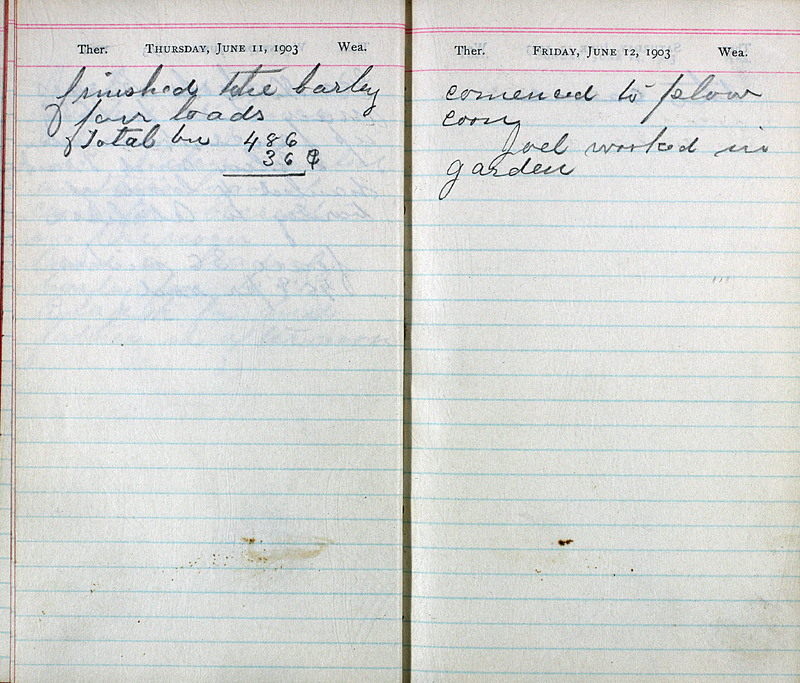 Ther. Thursday, June 11, 1903 Wea.
finished the barley
four loads
Total bu 486
36 ¢
Ther. Friday, June 12, 1903 Wea.
comenced to plow
corn
Joel worked in
garden